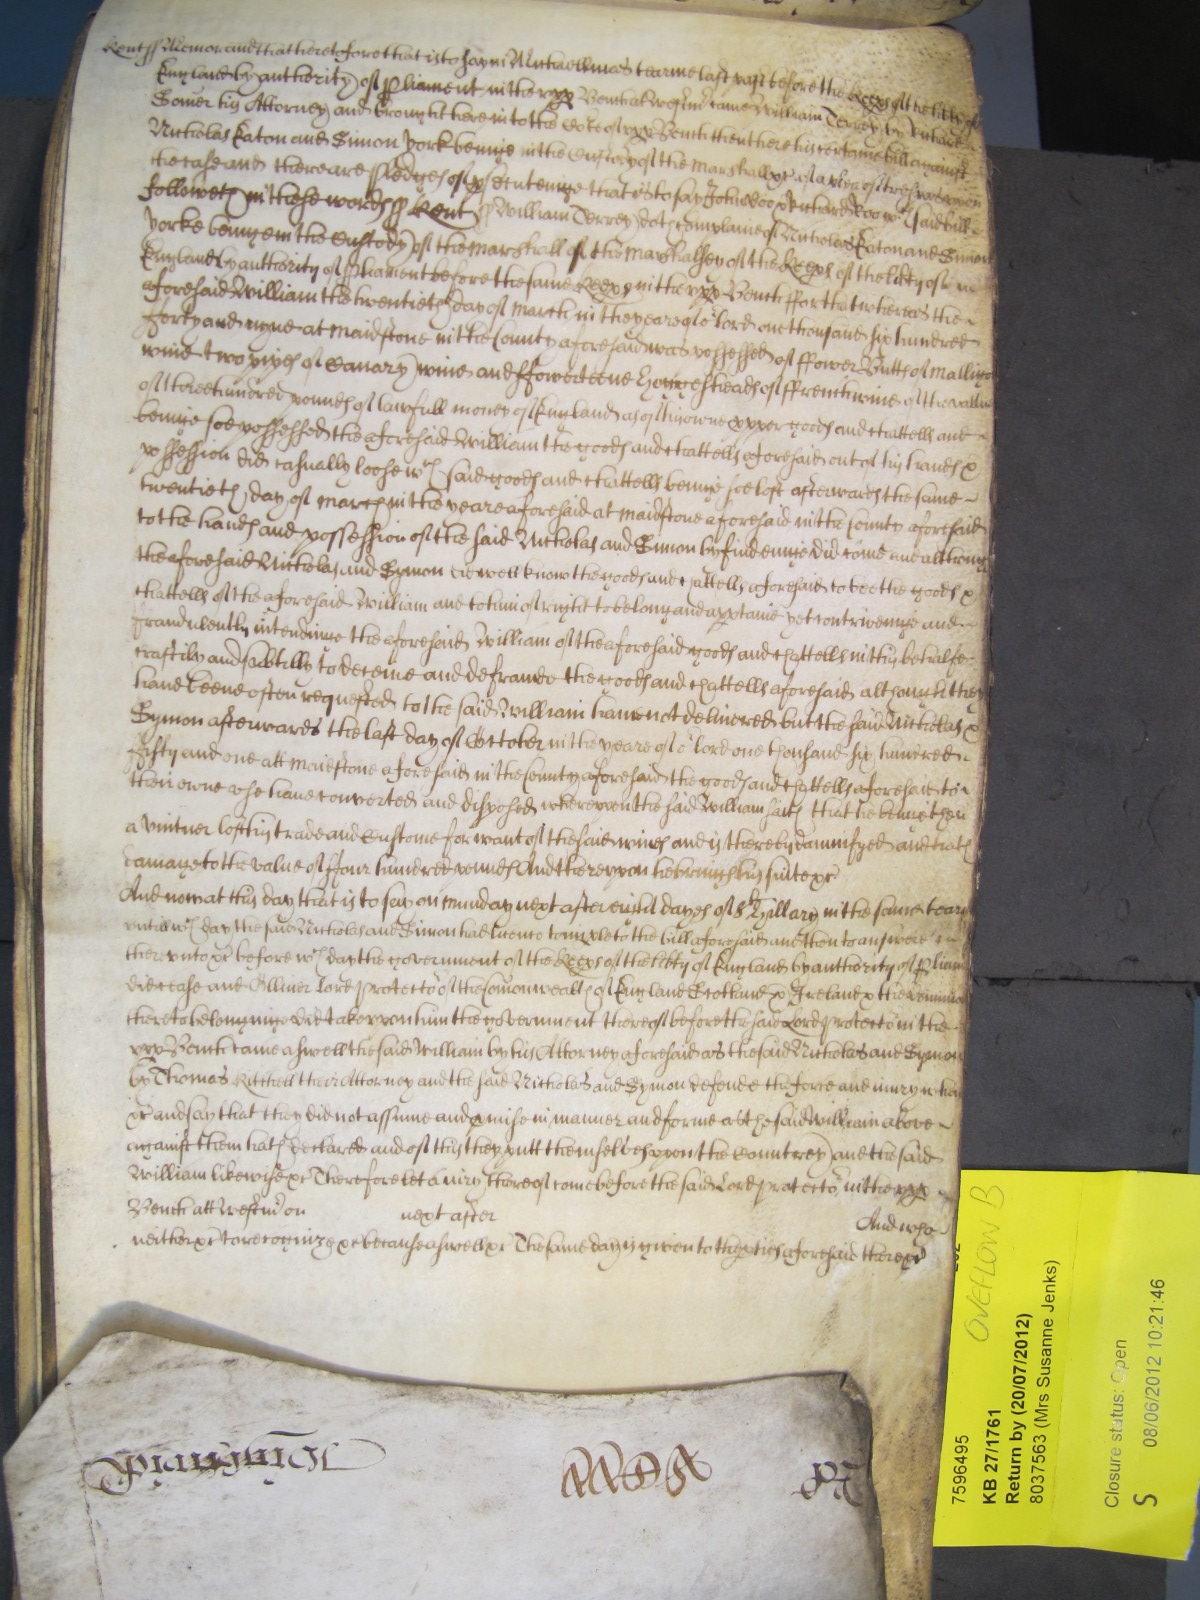 Kent ss Memorand that heretofore that is to say in Michaellmas tearme last past before the Keeps of the libty of
England by authority of Pliament in the upp Bench at Westm came William Terrey by
his Attorney and brought here into the Cort of upp Bench then there his certaine bill against
Nicholas Eaton and Simon York beinge in the Custody of the Marshall &c of a plea of trespas uppon
the case and there are pledges of psecuteinge that is to say John Doo & Richard Roo wch said bill
followeth in these words ss Kent ss William Terrey doth complaine of Nicholas Eaton and Simon
Yorke beinge in the Custody of the Marshall of the Marshalsey of the Keeps of the libty of
England by authority of Pliament before the same Keeps in the upp Bench ffor that whereas the
aforesaid William the twentieth day of March in the yeare of or lord one thousand six hundred
forty and nyne at Maidstone in the County aforesaid was possessed of ffower Butts of Malligo
wine two pipes of Canary wine and ffowerteene hoggesheads of ffrench wine of the vallue
of three hundred pounds of lawfull money of England as of his owne pper goods and chattells and
beinge soe possessed the aforesaid William the goods and chattells aforesaid out of his hands &
possession did casually loose wch said goods and chattells beinge soe lost afterwards the same
twentieth day of March in the yeare aforesaid at Maidstone aforesaid in the County aforesaid
to the hands and possession of the said Nicholas and Simon by findeinge did come and although
the aforesaid Nicholas and Symon did well know the goods and chattells aforesaid to bee the goods &
chattells of the aforesaid William and to him of right to belong and apptaine yet contriveinge and
fraudulently intendinge the aforesaid William of the aforesaid goods and chattells in this behalfe
craftily and subtilly to deceive and defraude the goods and chattells aforesaid although they
have beene often requested to the said William have not delivered but the said Nicholas &
Symon afterwards the last day of October in the yeare of or lord one thousand six hundred
fifty and one att Maidstone aforesaid in the County aforesaid the goods and chattells aforesaid to
their owne use have converted and disposed whereuppon the said William saith that he beinge then
a vintner lost his trade and Custome for want of the said wines and is thereby damnifyed and hath
damage to the value of ffour hundred pounds And thereuppon he brings his suite &c
And now at this day that is to say on Munday next after eight dayes of St Hillary in the same tearme
untill wch day the said Nicholas and Simon had licence to imple to the bill aforesaid and then to answere
thereunto &c before wch day the government of the Keeps of the libty of England by authority of Pliamt
did cease and Olliver Lord Protector of the Comonwealth of England Scotland & Ireland & the dominions
thereto belonginge did take uppon him the government thereof before the said Lord Protector in the
upp Bench came aswell the said William by his Attorney aforesaid as the said Nicholas and Symon
by Thomas Kitchell their Attorney and the said Nicholas and Symon defende the force and iniury when
&c and say that they did not assume and pmise in manner and forme as the said William above
against them hath declared and of this they putt themselves upon the Countrey and the said
William likewise &c Therefore let a iury thereof come before the said Lord Protector in the upp
Bench att Westmr on next after And who
neither &c to recognize &c because aswell &c The same day is given to the pties aforesaid there &c
7596495
KB 27/1761
Return by (20/07/2012)
8037563 (Mrs Susanne Jenks)
OVERFLOW B
Closure status: Open
S 08/06/2012 10:21:46